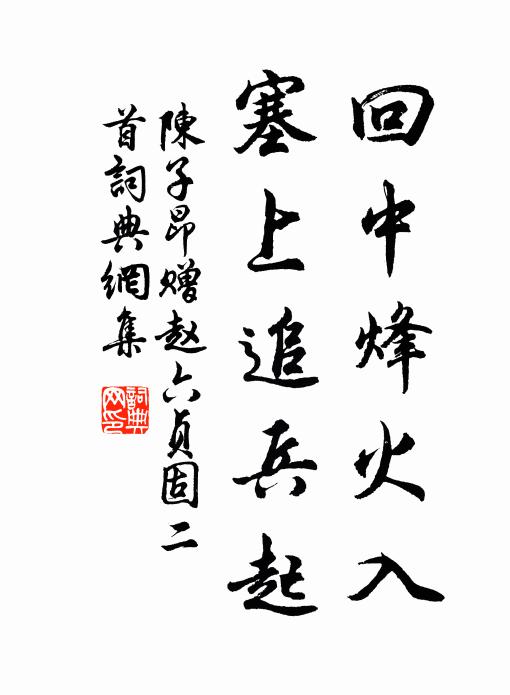 回中烽火入
塞上追兵起
陳子昂赠赵六贞固二
首詞典網集
詞典网印